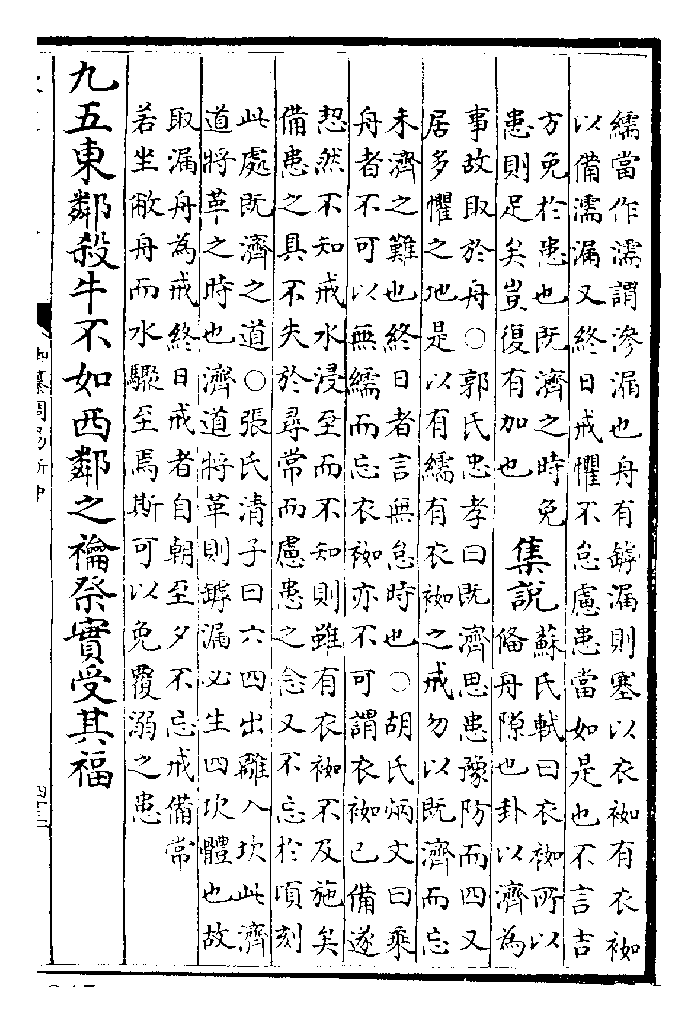 繻當作濡謂滲漏也舟有罅漏則塞以衣袽有衣袽
以備濡漏又終日戒懼不怠慮患當如是也不言吉
方免於患也既濟之時免
患則足矣豈復有加也
集説
蘇氏軾曰衣袽所以
備舟隙也卦以濟為
事故取於舟○郭氏忠孝曰既濟思患豫防而四又
居多懼之地是以有繻有衣袽之戒勿以既濟而忘
未濟之難也終日者言無怠時也○胡氏炳文曰乘
舟者不可以無繻而忘衣袽亦不可謂衣袽已備遂
恝然不知戒水浸至而不知則雖有衣袽不及施矣
備患之具不失於尋常而慮患之念又不忘於頃刻
此處既濟之道○張氏清子曰六四出離入坎此濟
道將革之時也濟道將革則罅漏必生四坎體也故
取漏舟為戒終日戒者自朝至夕不忘戒備常
若坐敝舟而水驟至焉斯可以免覆溺之患
九五東鄰殺牛不如西鄰之禴祭實受其福